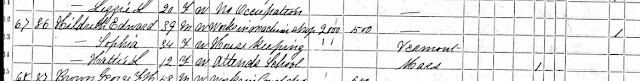 — Lizzie 20 F W No Occupation
67 86 Hildreth Edward 39 M W Works in machine shop 2000 500 — 1
— Sophia 34 F W House Keeping Vermont
— Hattie L 12 F W Attends School Mass 1
68 87 Brown George